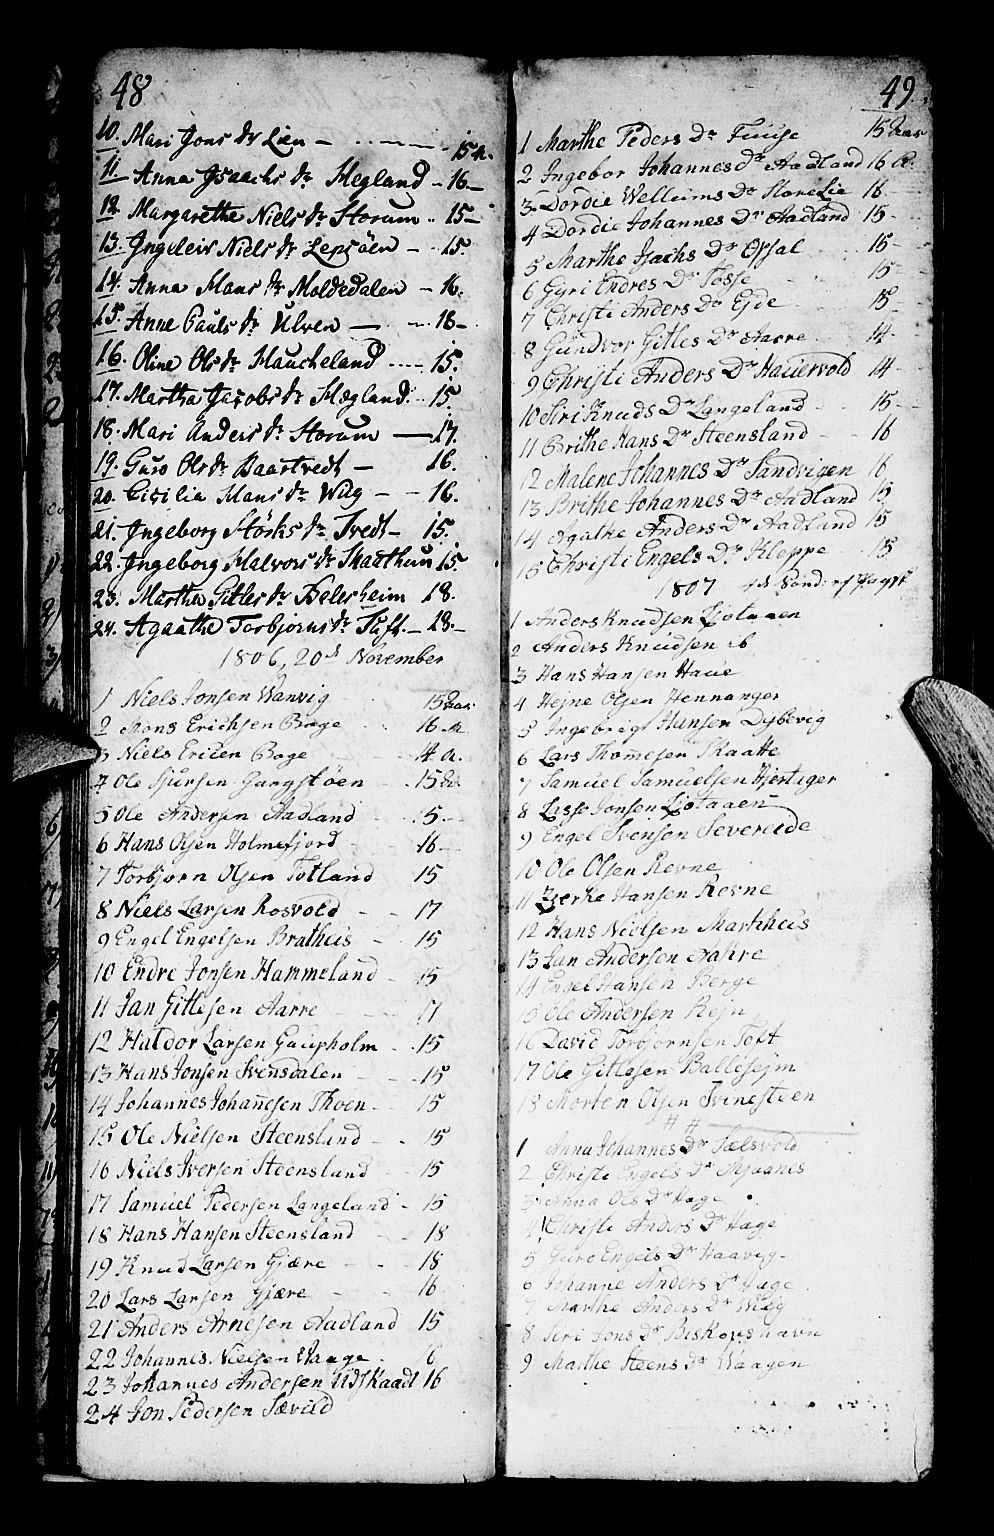 48
10. Mari Jons Dr Lien - 15 A.
11. Anna Isaachs Dr Megland - 16.
12. Margarethe Niels Dr Storum 15
13. Ingeleiv Niels Dr Lepsöen - 15.
14. Anna Mons Dr Moldedalen - 16.
15. Anne Pauls Dr Ulven - 16
16. Oline Ols Dr Haucheland 15.
17. Martha Jacobs Dr Mægland. 15.
18. Mari Anders Dr Storum 17.
19. Guro Ols Dr Baartvedt - 16.
20. Cicilia Mons Dr Wiig - 16.
21. Ingeborg Störks Dr Tvedt - 15.
22. Ingeborg Halvors Dr Skaathun 15.
23. Martha Gitles Dr Belesheim 18.
24. Agaathe Torbjorns Dr Tuft - 18.
1806, 20de November
1 Niels Jonsen Wanvig 15 Aar
2 Mons Erichsen Brage 16 A.
3 Niels Ericen Brage 14 A.
4 Ole Sjursen Gangstöen 15
5 Ole Andersen Aadland 15.
6 Hans Olsen Holmefjord 16
7 Torbjørn Olsen Totland 15
8 Niels Larsen Rosvold 17
9 Engel Engelsen Bratheis 15
10 Endre Jonsen Hammeland 15
11 Jan Gitlesen Aarre 17
12 Haldor Larsen Gaupholm 15
13 Hans Jonsen Svensdalen 15
14 Johannes Johanesen Thoen 15
15 Ole Nielsen Steensland 15
16 Niels Iversen Steensland 15
17 Samuel Pedersen Langeland 15
18 Hans Hansen Steensland 18
19 Knud Larsen Gjære 18
20 Lars Larsen Gjære 16
21 Anders Arnesen Aadland 15
22 Johannes Nielsen Vaage 16
23 Johannes Andersen Udskaadt 16
24 Jon Pedersen Sævild
49
1 Marthe Peders Dr Fuuse 15 Aar
2 Ingebor Johannes Dr Aadland 16 A.
3 Dordie Wellums Dr StoreLie 16
4 Dordie Johannes Dr Aadland 15
5 Marthe Isachs Dr Opsal 15
6 Gyri Endres Dr Tosse 15
7 Christi Anders Dr Ejde 15
8 Gundvor Gitles Dr Aarre 14
9 Christi Anders Dr Hauervold 14
10 Siri Knuds Dr Langeland 15
11 Brithe Hans Dr Steensland 16
12 Malene Johannes Dr Sandvigen 16
13 Brithe Johannes Dr Aadland 15
14 Agathe Anders Dr Aadland 15
15 Christi Engels Dr Kleppe 15
1807 4de Sønd:
1 Anders Knudsen Liotaaen
2 Anders Knudsen ib
3 Hans Hansen Haue
4 Hejne Olsen Hennanger
5 Ingebrigt Hansen Dybevig
6 Lars Thomesen Skaate
7 Samuel Samuelsen Hjertiger
8 Lasse Jonsen Liotaaen
9 Engel Svensen Severeide
10 Ole Olsen Revne
11 Hansen Revne
12 Hans Nielsen Markheis
13 Jan Andersen Aakre
14 Engel Hansen Berge
15 Ole Andersen Rejn
16 David Torbjørnsen Toft
17 Ole Gitlesen Ballesejm
18 Morten Olsen Tvinesteen
1 Anna Johannes Dr Sælsvold
2 Christi Engels Dr
3 Anna Ols Dr Hage
4 Christi Anders Dr Hage
5 Guro Engels Dr Vaavig
6 Johanne Anders Dr Hage
7 Marthe Anders Dr Wiig
8 Siri Jons Dr Biskopshavn
9 Marthe Steens Dr Waagen